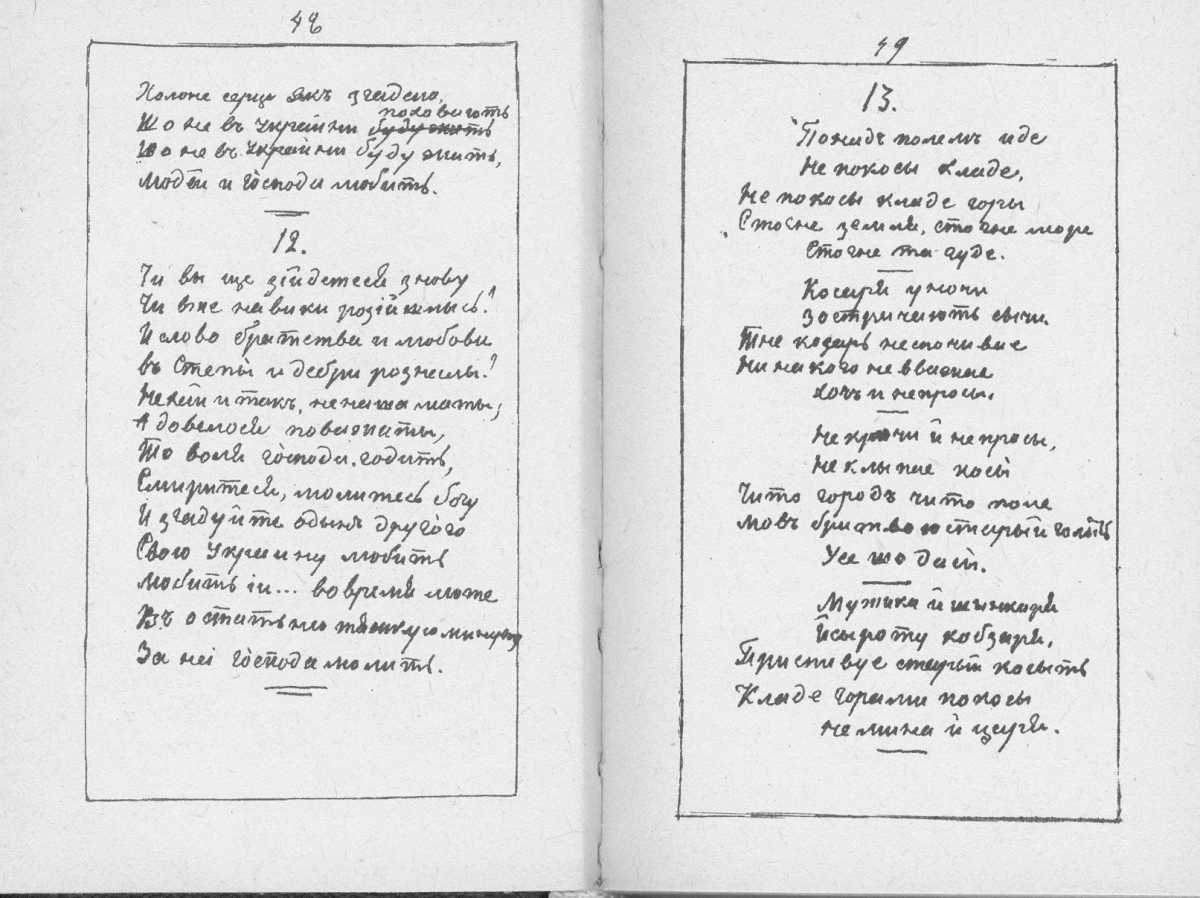 48
Холоне серце якъ згадаю,
поховають
Що не въ Украйни буду жить
Що не въ Украйни буду жить,
Людей и Господа любить.
12.
Чи вы ще зійдетеся знову
Чи вже навики розійшлысь?
И слово братства и любови
въ степы и дебри рознеслы?
Нехай и такъ, не наша маты,
А довелося поважаты,
То воля господа. годить,
Смиритеся, молитесь богу
И згадуйте одынъ другого
Свою Украину любить
Любить іи... во время люте
Въ остатню тяжкую минуту
За неі Господа молить.
49
13.
Понадъ полемъ иде
Не покосы кладе,
Не покосы кладе горы
Стогне земля, стогне море
Стогне та гуде.
Косаря уночи
Зостричають сычи.
Тне косарь неспочивае
Ни на кого не вважае
Хочъ и непросы.
Не кричи й не просы,
Не клыпае косы
Чито городъ чито поле
Мовъ бритвою старый голить
Усе що дасы.
Мужика й шинкаря
Йсыроту кобзаря,
Приспивуе старый косыть
Кладе горами покосы
Не мина й царя.